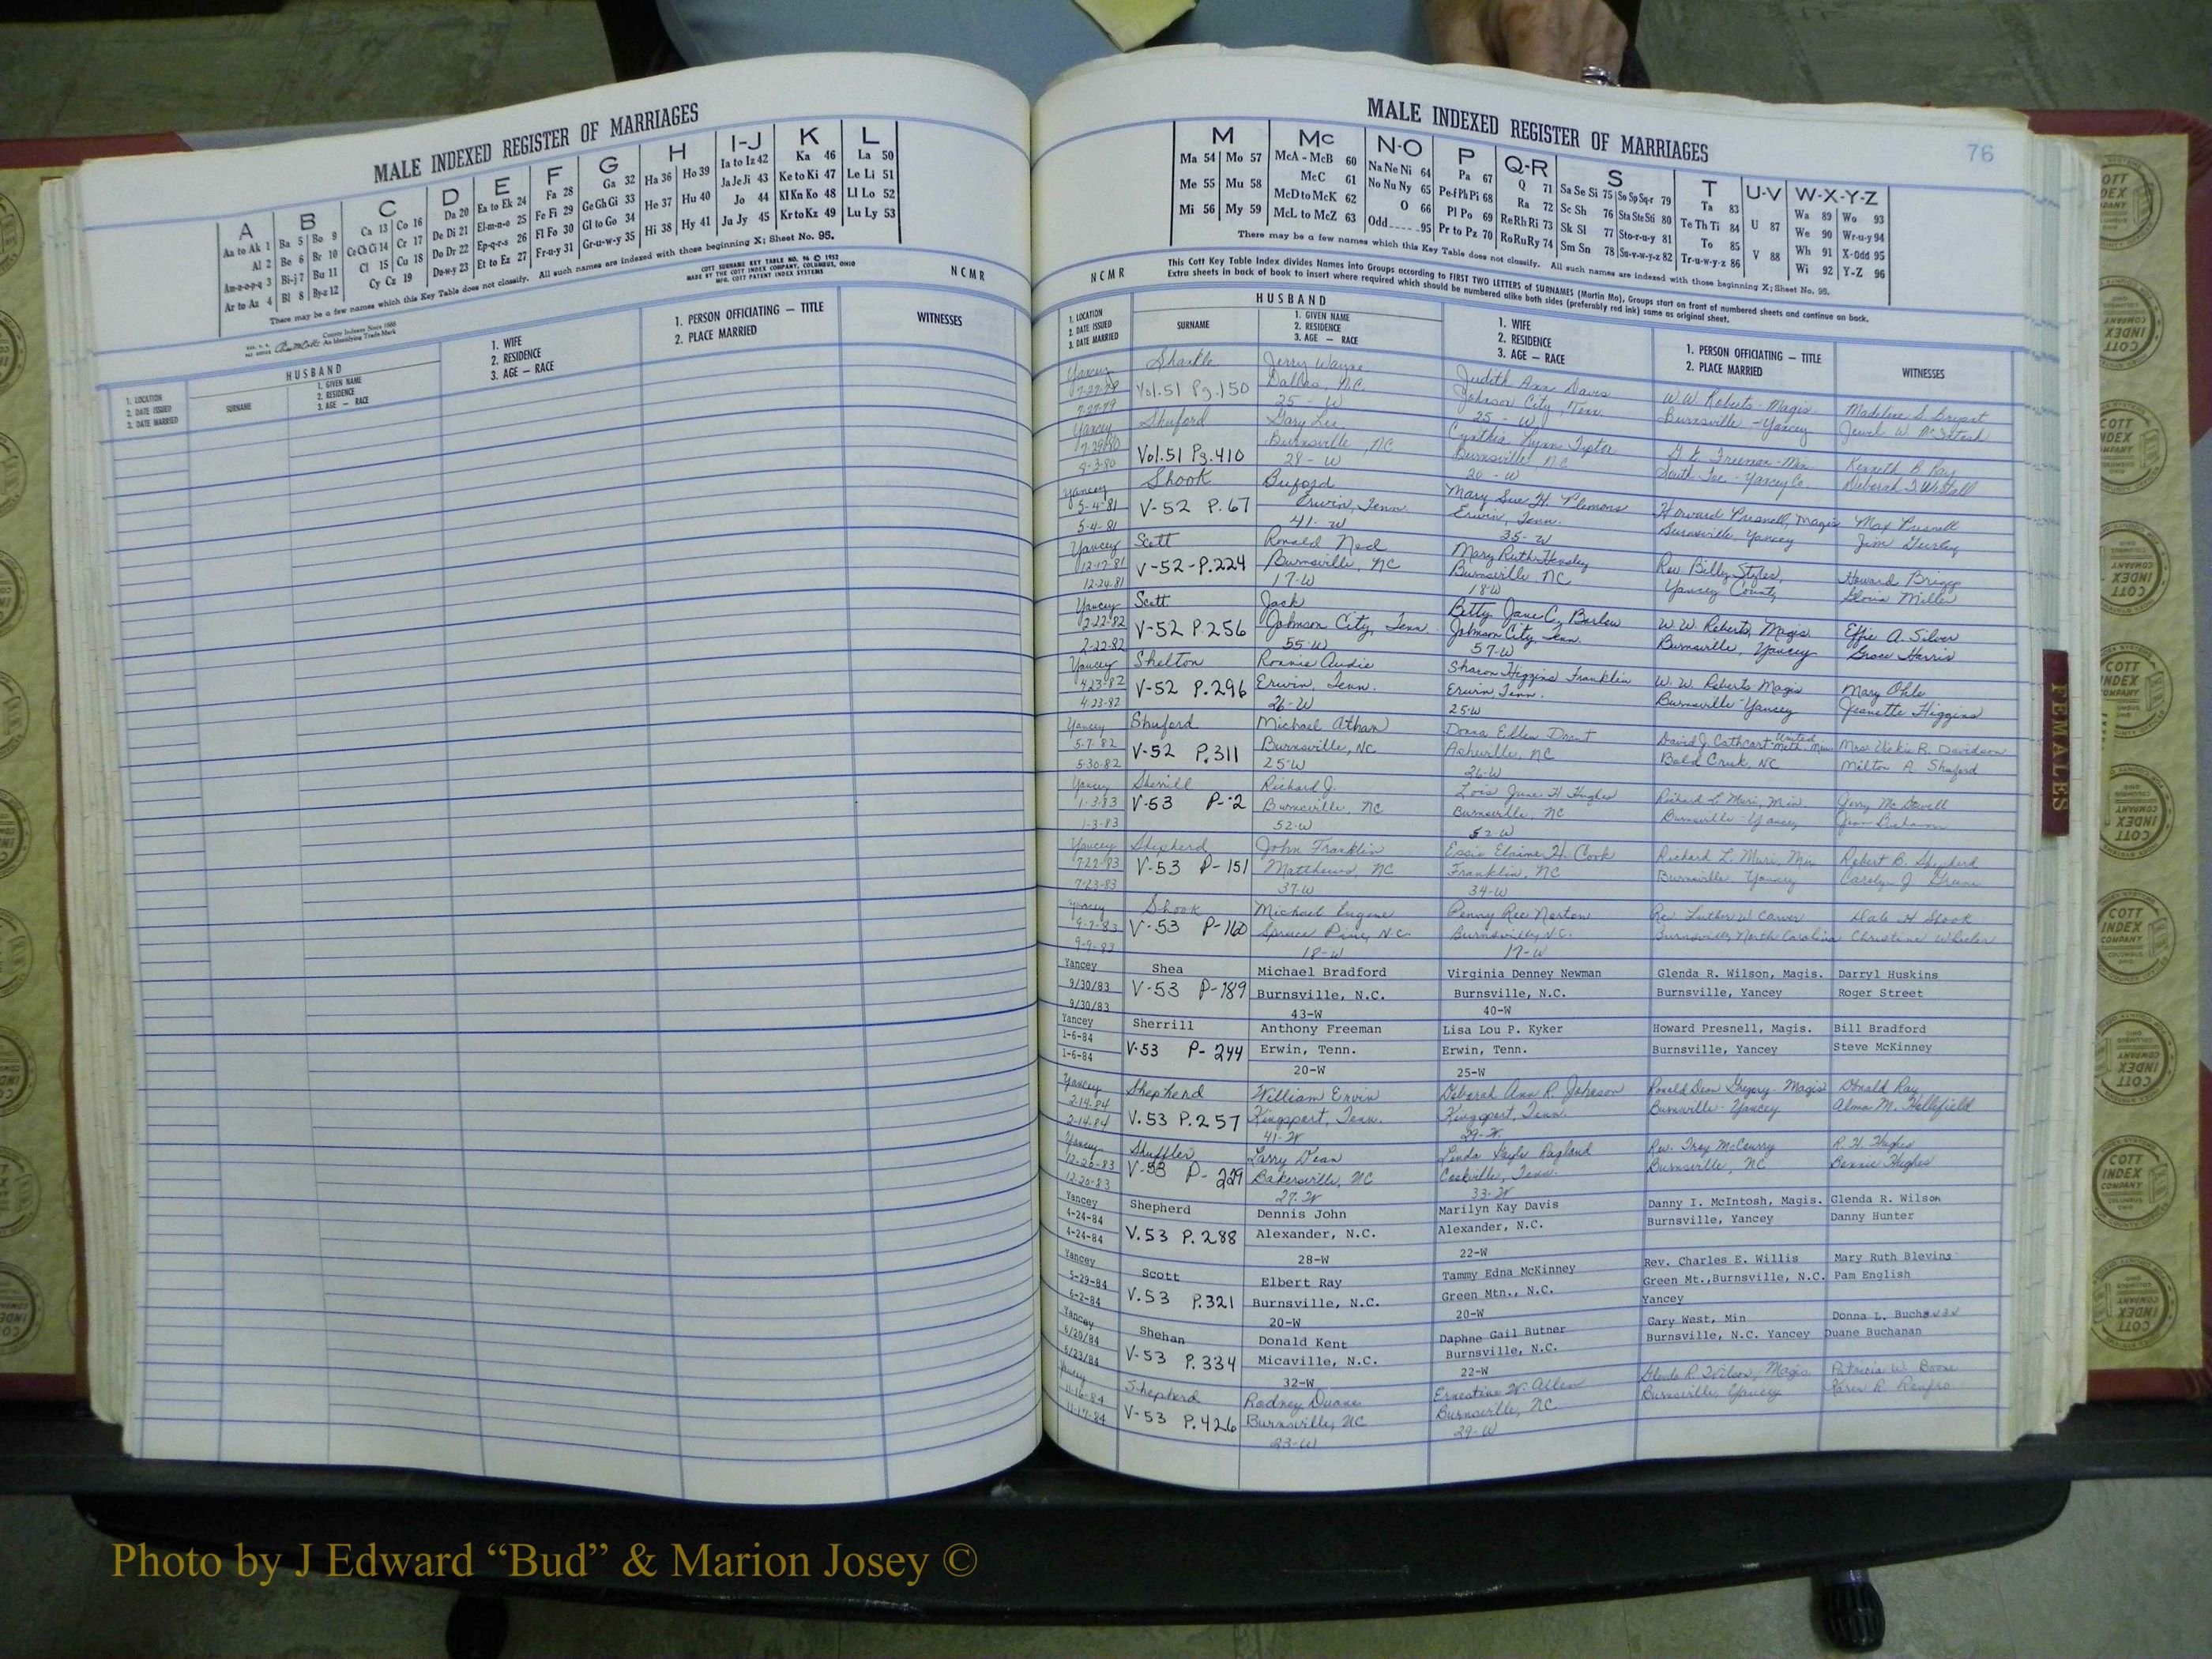 MALE INDEXED REGISTER OF MARRIAGES
A B C D E F G H I-J K L
Aa to Ak 1 Ba 5 Bo 9 Ca 13 Co 16 Da 20 Ea to Ek 24 Fa 28 Ga 32 Ha 36 Ho 39 Ia to Iz 42 Ka 46 La 50
Al 2 Be 6 Br 10 Ce Ch Ci 14 Cr 17 De Di 21 El-m-n-o 25 Fe Fi 29 Ge Gh Gi 33 He 37 Hu 40 Ja Je Ji 43 Ke to Ki 47 Le Li 51
Am-n-o-p-q 3 Bi-j 7 Bu 11 Cl 15 Cu 18 Do Dr 22 Ep-q-r-s 26 Fl Fo 30 Gl to Go 34 Hi 38 Hy 41 Jo 44 Kl Kn Ko 48 Ll Lo 52
Ar to Az 4 Bl 8 By-z 12 Cy Cz 19 Du-w-y 23 Et to Ez 27 Fr-u-y 31 Gr-u-w-y 35 Ju Jy 45 Kr to Kz 49 Lu Ly 53
There may be a few names which this Key Table does not classify. All such names are indexed with those beginning X; Sheet No. 95.
COTT SURNAME KEY TABLE NO. 96 © 1952
MADE BY THE COTT INDEX COMPANY, COLUMBUS, OHIO
MFG. COTT PATENT INDEX SYSTEMS
NCMR
County Indexes Since 1888
An Identifying Trade Mark
HUSBAND
1. LOCATION
2. DATE ISSUED
3. DATE MARRIED
SURNAME
1. GIVEN NAME
2. RESIDENCE
3. AGE — RACE
1. WIFE
2. RESIDENCE
3. AGE — RACE
1. PERSON OFFICIATING — TITLE
2. PLACE MARRIED
WITNESSES
MALE INDEXED REGISTER OF MARRIAGES
76
M Mc N-O P Q-R S T U-V W-X-Y-Z
Ma 54 Mo 57 McA - McB 60 Na Ne Ni 64 Pa 67 Q 71 Sa Se Si 75 So Sp Sq-r 79 Ta 83 U 87 Wa 89 Wo 93
Me 55 Mu 58 McC 61 No Nu Ny 65 Pe-f Ph Pi 68 Ra 72 Sc Sh 76 Sta Ste Sti 80 Te Th Ti 84 V 88 We 90 Wr-u-y 94
Mi 56 My 59 McD to McK 62 O 66 Pl Po 69 Re Rh Ri 73 Sk Sl 77 Sto-r-u-y 81 To 85 Wh 91 X-Odd 95
McL to McZ 63 Odd 95 Pr to Pz 70 Ro Ru Ry 74 Sm Sn 78 Su-v-w-y-z 82 Tr-u-w-y-z 86 Wi 92 Y-Z 96
There may be a few names which this Key Table does not classify. All such names are indexed with those beginning X; Sheet No. 95.
NCMR
This Cott Key Table Index divides Names into Groups according to FIRST TWO LETTERS of SURNAMES (Martin Ma), Groups start on front of numbered sheets and continue on back.
Extra sheets in back of book to insert where required which should be numbered alike both sides (preferably red ink) same as original sheet.
HUSBAND
1. LOCATION
2. DATE ISSUED
3. DATE MARRIED
SURNAME
1. GIVEN NAME
2. RESIDENCE
3. AGE — RACE
1. WIFE
2. RESIDENCE
3. AGE — RACE
1. PERSON OFFICIATING — TITLE
2. PLACE MARRIED
WITNESSES
Yancey Jerry Wayne Judith Ann Davis W.W. Roberts - Magis
7-27-79 Vol.51 Pg.150 Dallas, NC Johnson City, Tenn Burnsville - Yancey
7-27-79 25 - W 25 - W
Yancey Shuford Gary Lee Cynthia Lynn Kenneth B Ray
7-29-80 Vol.51 Pg.410 Burnsville, NC Burnsville, NC Yancey Co. Deborah
8-3-80 28 - W 20 - W
Yancey Shook Buford Mary Sue H. Plemons Howard Presnell, Magis Max Presnell
5-4-81 V-52 P.67 Erwin, Tenn Erwin, Tenn. Burnsville, Yancey Jim
5-4-81 41-W 35-W
Yancey Scott Ronald Ned Mary Ruth Hensley Rev. Billy Styles,
12-17-81 V-52-P.224 Burnsville, NC Burnsville NC Yancey County Gloria Miller
12-24-81 17-W 18 W
Yancey Scott Jack Betty Jane C. Barlow W.W. Roberts, Magis Effie A. Silver
2-22-82 V-52 P.256 Johnson City, Tenn. Johnson City, Tenn. Burnsville, Yancey Grace Harris
2-22-82 55-W 57-W
Yancey Shelton Ronnie Audie Sharon Higgins Franklin W.W. Roberts Magis Mary Ohle
4-23-82 V-52 P.296 Erwin, Tenn. Erwin Tenn. Burnsville - Yancey Jeanette Higgins
4-23-82 26-W 25 W
Yancey Shuford Michael Athan Donna Ellen David J. Cathcart United Meth. Min Mrs. Vickie R. Davidson
5-7-82 V-52 P.311 Burnsville, NC Asheville, NC Bald Creek, NC Milton A Shuford
5-30-82 25-W 26-W
Yancey Sherrill Richard J. Lois June H Hughes Richard L. Min Jerry McDowell
1-3-83 V-53 P-2 Burnsville, NC Burnsville, NC Burnsville - Yancey Jean Buchanan
1-3-83 52-W 52-W
Yancey Shepherd John Franklin Essie Elaine H. Cook Richard L. Min Robert B. Shepherd
7-22-83 V-53 P-151 Matthews, NC Franklin, NC Burnsville Yancey Carolyn J
7-23-83 37-W 34-W
Yancey Shook Michael Eugene Penny Ree Norton Rev. Luther W. Carver Dale H Shook
9-7-83 V-53 P-160 Spruce Pine, N.C. Burnsville, N.C. Burnsville, North Carolina Christine Wheeler
9-9-83 18-W 17-W
Yancey Shea Michael Bradford Virginia Denney Newman Glenda R. Wilson, Magis. Darryl Huskins
9/30/83 V-53 P-189 Burnsville, N.C. Burnsville, N.C. Burnsville, Yancey Roger Street
9/30/83 43-W 40-W
Yancey Sherrill Anthony Freeman Lisa Lou P. Kyker Howard Presnell, Magis. Bill Bradford
1-6-84 V-53 P-244 Erwin, Tenn. Erwin, Tenn. Burnsville, Yancey Steve McKinney
1-6-84 20-W 25-W
Yancey Shepherd William Ervin Deborah Ann R. Johnson Ronald Dean Gregory - Magis Donald Ray
2-14-84 V.53 P.257 Kingsport, Tenn. Kingsport, Tenn. Burnsville - Yancey Alma M. Hollifield
2-14-84 41-W 29-W
Yancey Shuffler Larry Dean Linda Gayle Ragland Rev. Troy McCurry R. H. Hughes
12-20-83 V-53 P-229 Bakersville, NC Cookville, Tenn. Burnsville, NC Bennie Hughes
12-20-83 27-W 33-W
Yancey Shepherd Dennis John Marilyn Kay Davis Danny I. McIntosh, Magis. Glenda R. Wilson
4-24-84 V.53 P.288 Alexander, N.C. Alexander, N.C. Burnsville, Yancey Danny Hunter
4-24-84 28-W 22-W
Yancey Scott Elbert Ray Tammy Edna McKinney Rev. Charles E. Willis Mary Ruth Blevins
5-29-84 V.53 P.321 Burnsville, N.C. Green Mtn., N.C. Green Mt.,Burnsville, N.C. Pam English
6-2-84 20-W 20-W Yancey
Yancey Shehan Donald Kent Daphne Gail Butner Gary West, Min Donna L. Buchanan
6/20/84 V-53 P.334 Micaville, N.C. Burnsville, N.C. Burnsville, N.C. Yancey Duane Buchanan
6/23/84 32-W 22-W
Yancey Shepherd Rodney Duane Ernestine W. Allen Glenda R. Wilson, Magis Patricia W. Boone
11-16-84 V-53 P.426 Burnsville, NC Burnsville, NC Burnsville, Yancey Karen R. Renfro
11-17-84 23-W 29-W
FEMALES
COTT
INDEX
COMPANY
Photo by J Edward “Bud” & Marion Josey ©